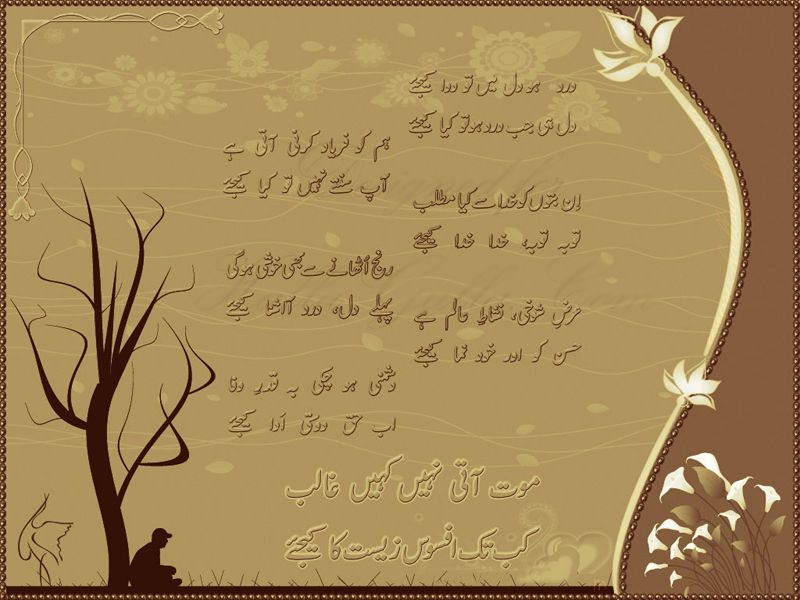 درد ہو دل میں تو دوا کیجئے
دل ہی جب درد ہو تو کیا کیجئے
ہم کو فریاد کرنی آتی ہے
آپ سنتے نہیں تو کیا کیجئے
اِن بتوں کو خدا سے کیا مطلب
توبہ توبہ، خدا خدا کیجئے
رنج اُٹھانے سے بھی خوشی ہوگی
پہلے دل، درد آشنا کیجئے
عرضِ شوخی، نشاطِ عالم ہے
حسن کو اور خود نما کیجئے
دشمنی ہو چکی بہ قدرِ وفا
اب حق دوستی اَدا کیجئے
موت آتی نہیں کہیں غالب
کب تک افسوس زیست کا کیجئے